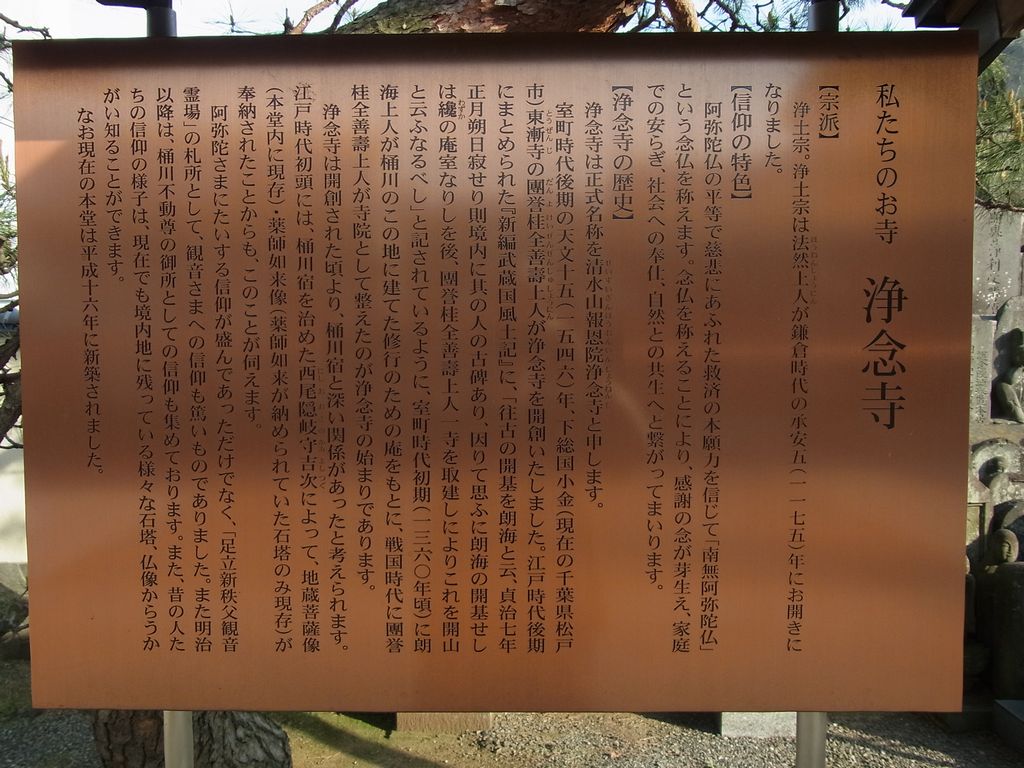 私たちのお寺　浄念寺
【宗派】
浄土宗。浄土宗は法然上人が鎌倉時代の承安五（一一七五）年にお開きに
なりました。
【信仰の特色】
阿弥陀仏の平等で慈悲にあふれた救済の本願力を信じて「南無阿弥陀仏」
という念仏を称えます。念仏を称えることにより、感謝の念が芽生え、家庭
での安らぎ、社会への奉仕、自然との共生へと繋がってまいります。
【浄念寺の歴史】
浄念寺は正式名称を清水山報恩院浄念寺と申します。
室町時代後期の天文十五（一五四六）年、下総国小金（現在の千葉県松戸
市）東漸寺の團誉桂全善壽上人が浄念寺を開創いたしました。江戸時代後期
にまとめられた『新編武蔵国風土記』に、「往古の開基を朗海と云、貞治七年
正月朔日寂せり則境内に其の人の古碑あり、因りて思ふに朗海の開基せし
は纔の庵室なりしを後、團誉桂全善壽上人一寺を取建しによりこれを開山
と云ふなるべし」と記されているように、室町時代初期（一三六〇年頃）に朗
海上人が桶川のこの地に建てた修行のための庵をもとに、戦国時代に團誉
桂全善壽上人が寺院として整えたのが浄念寺の始まりであります。
浄念寺は開創された頃より、桶川宿と深い関係があったと考えられます。
江戸時代初頭には、桶川宿を治めた西尾隠岐守吉次によって、地蔵菩薩像
（本堂内に現存）・薬師如来像（薬師如来が納められていた石塔のみ現存）が
奉納されたことからも、このことが伺えます。
阿弥陀さまにたいする信仰が盛んであっただけでなく、「足立新秩父観音
霊場」の札所として、観音さまへの信仰も篤いものでありました。また明治
以降は、桶川不動尊の御所としての信仰も集めております。また、昔の人た
ちの信仰の様子は、現在でも境内地に残っている様々な石塔、仏像からうか
がい知ることができます。
なお現在の本堂は平成十六年に新築されました。